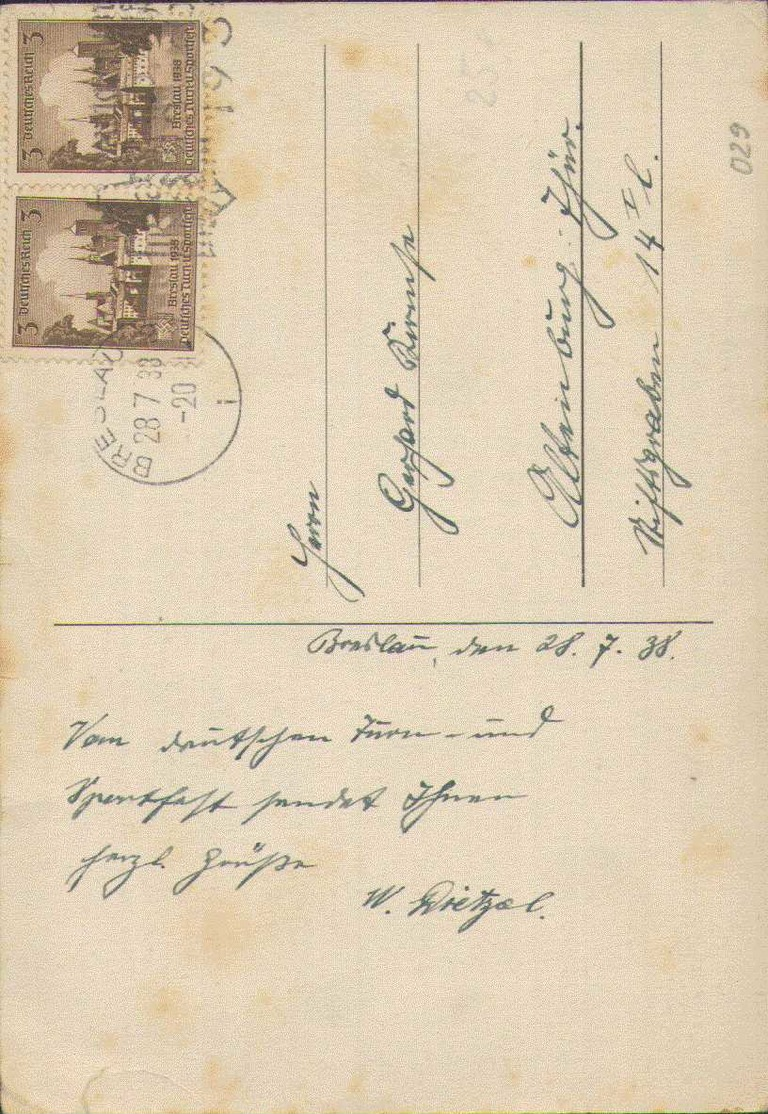 3 Deutsches Reich 3
Breslau 1938
Deutsches Turn-u. Sportfest
3 Deutsches Reich 3
Breslau 1938
Deutsches Turn-u. Sportfest
BRESLAU
28 7 38
-20
i
029
Herrn
Gerhard
Altenburg. Thür.
Stiftsgraben 14 I l.
Breslau, den 28. 7. 38.
Vom deutschen Turn- und
Sportfest sendet Ihnen
herzl. Grüße
W. Dietzel.